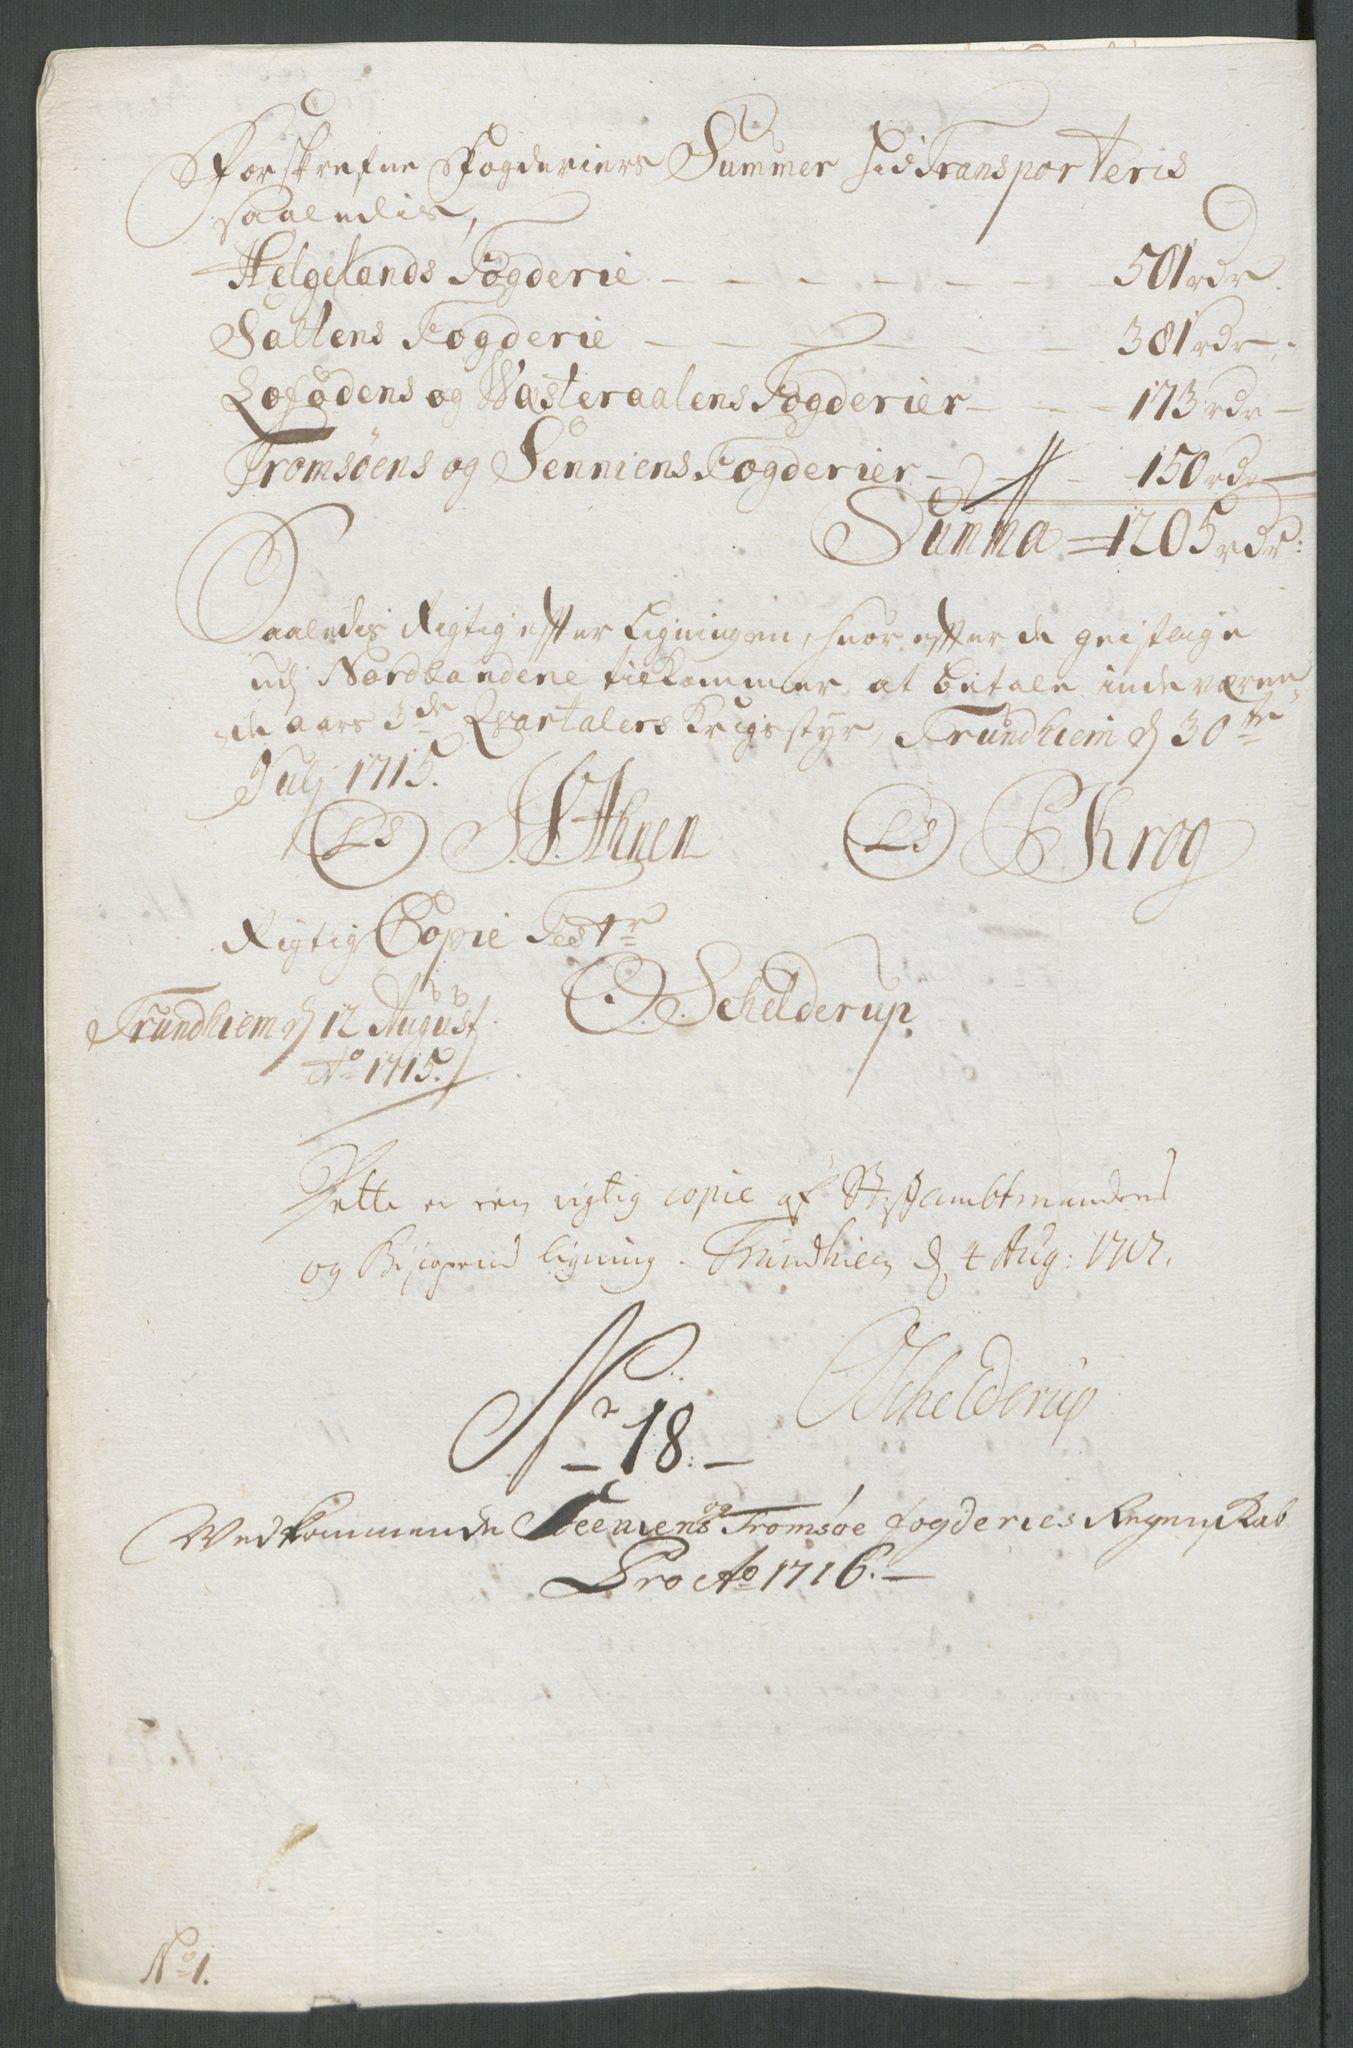 Forskrefne Fogderiers Summer hid Transporteris
saaledis,
Helgelands Fogderie — — — — — — — 501 rdr.
Saltens Fogderie — — — — — — — 381 rdr.
Lofodens og Wæsteraalens Fogderier — — — 173 rdr —
Tromsøens og Senniens Fogderier — — — 150 rdr —
Summa = 1205 rdr:
Saaledis Rigtig efter Ligningen, huor efter de geistlige
udj Nordlandene tilkommer at betale indeværen-
de aars 3de Qvartalers Krigsstyr, Trundhiem d 30te
Julj 1715.
LS Ahnen LS P Krog
Rigtig Copie Test:r
O. Schelderup.
Trundhiem d 12 August
Ao 1715.
Dette er een rigtig copie af Stiftambtmandens
og Biscopens ligning. Trundhiem d 4 Aug: 1717.
Schelderup
Nr 18.
Vedkommende Seeniens og Tromsøe fogderies Regenskab
Pro Ao 1716.
No 1.